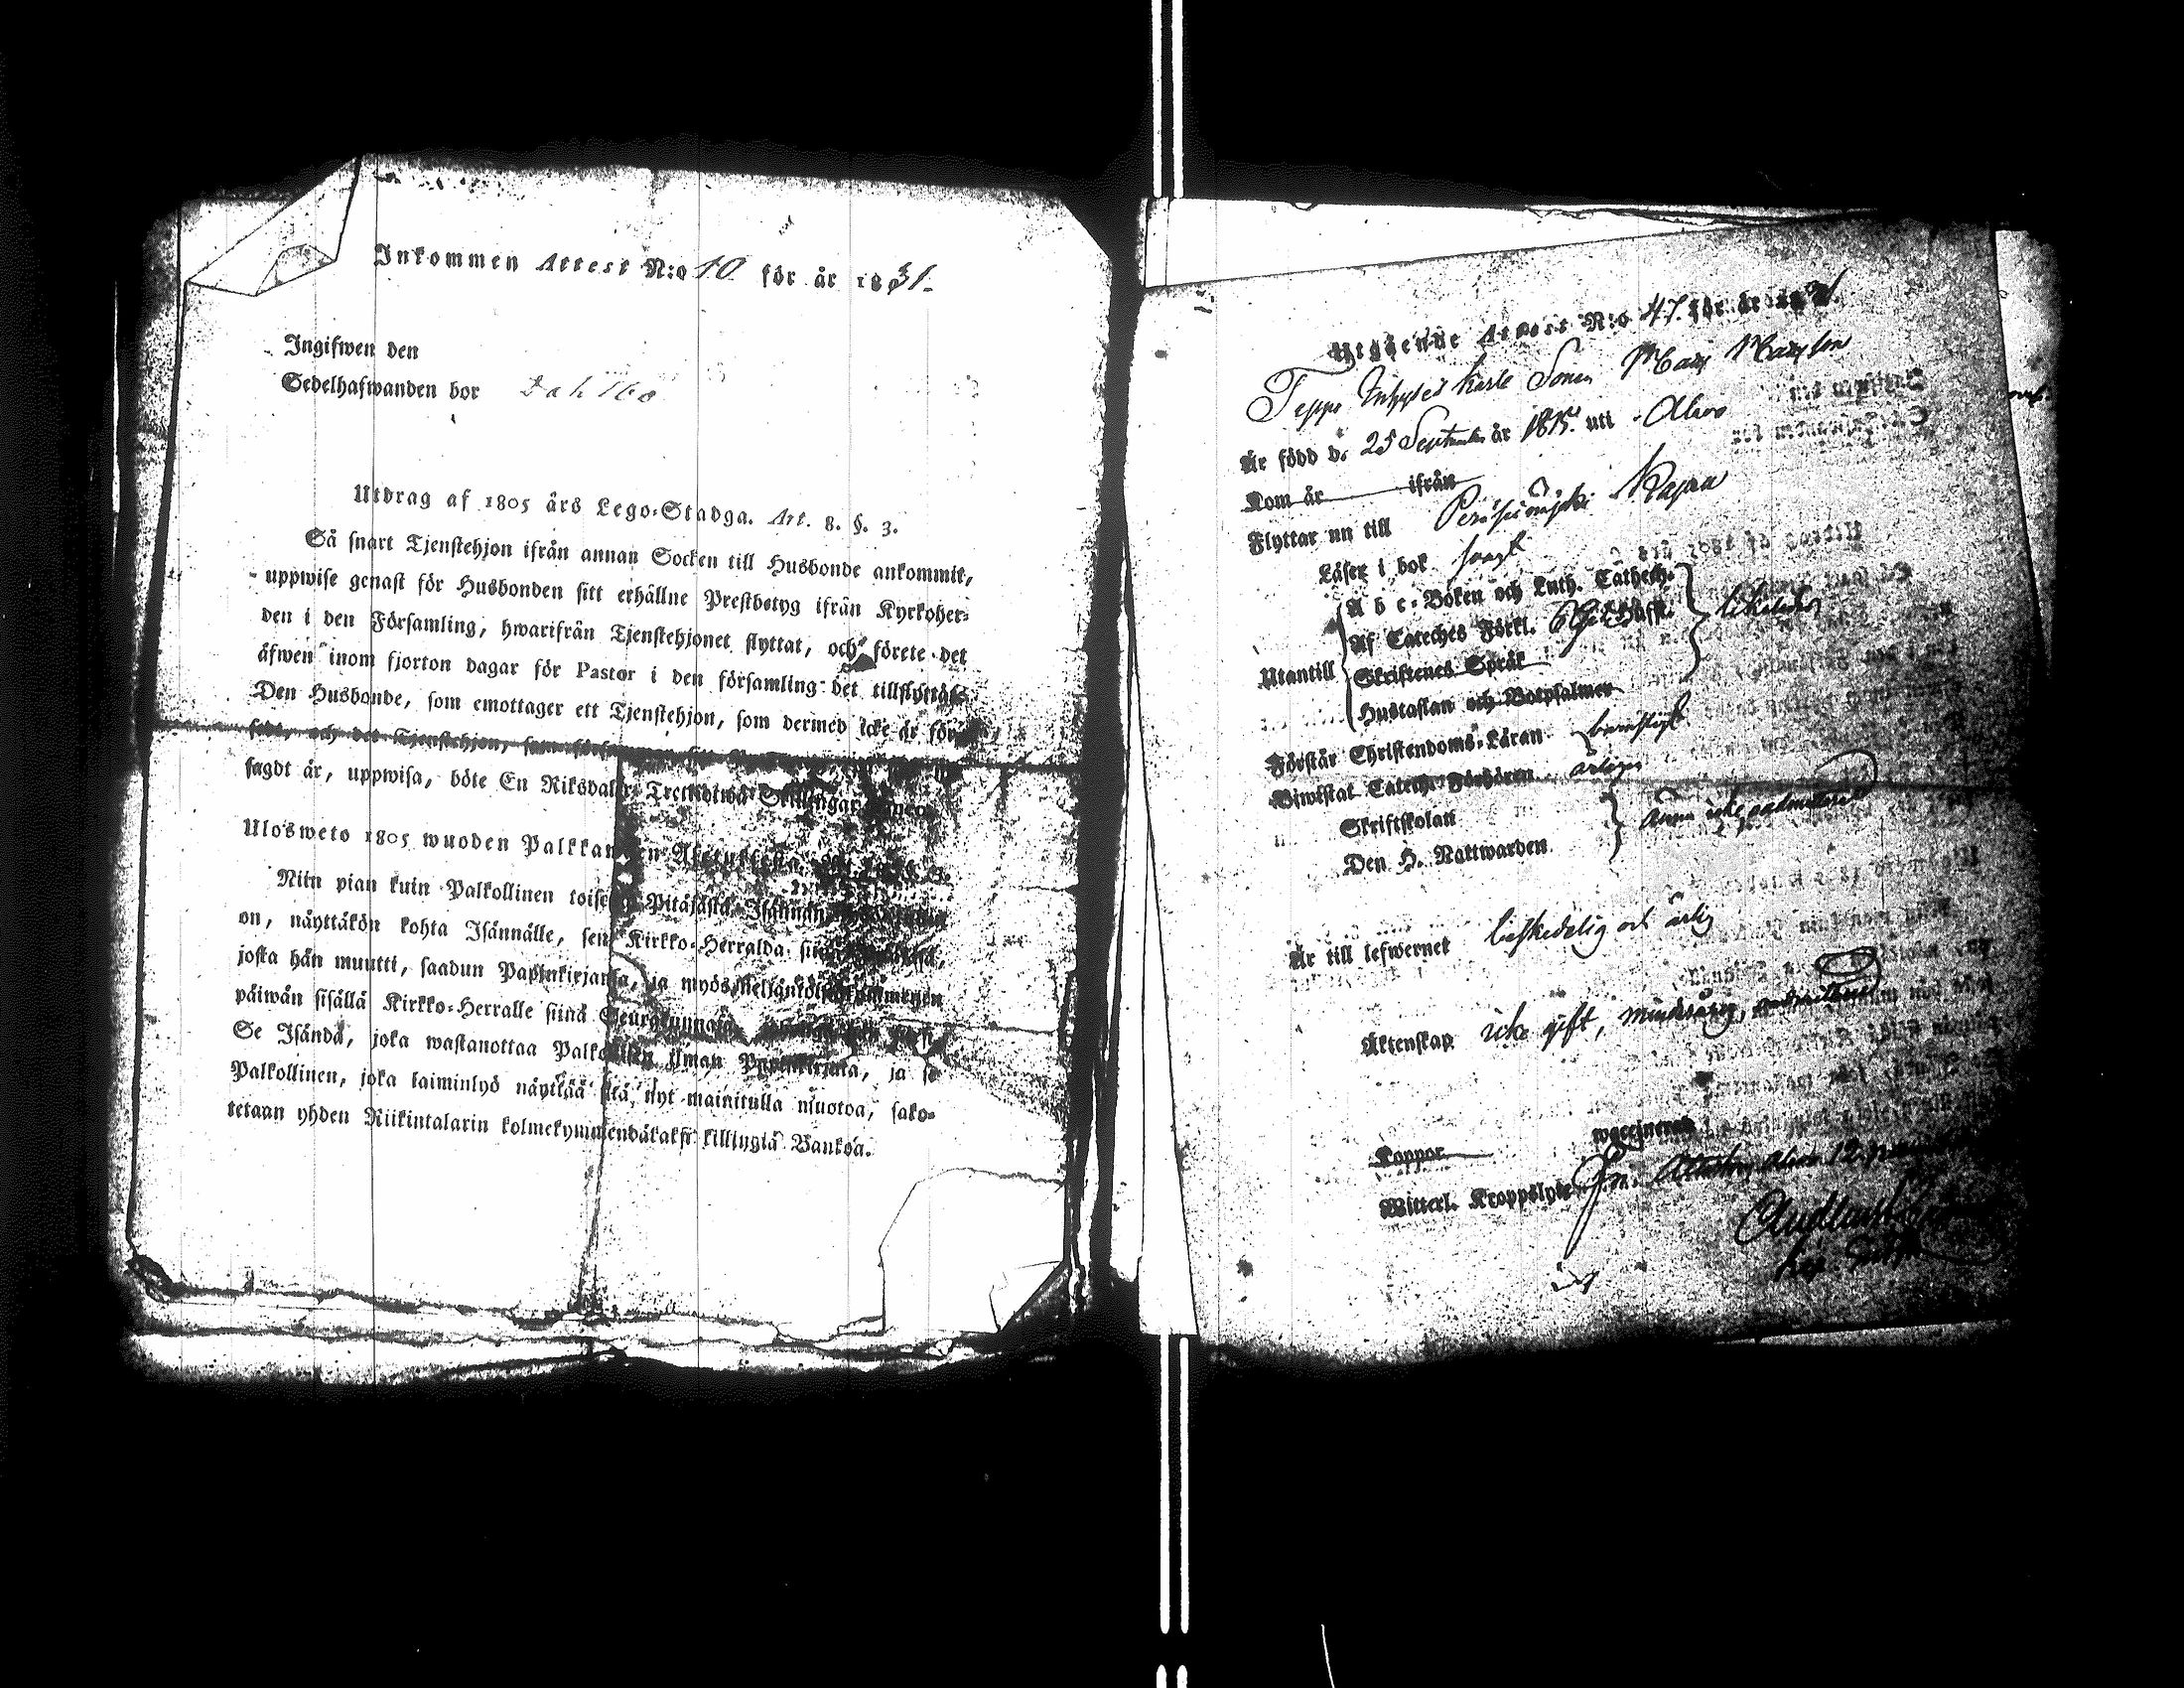 Inkommen Attest N:o 10 för år 1831.
Ingifwen den
Sedelhafwanden bor Dahlbo
Utdrag af 1805 års Lego-Stadga. Art. 8. §. 3.
Så snart Tjenstehjon ifrån annan Socken till Husbonde ankommit,
uppwise genast för Husbonden sitt erhållne Prestbetyg ifrån Kyrkoher-
den i den Församling, hwarifrån Tjenstehjonet flyttat, och förete det
äfwen inom fjorton dagar för Pastor i den församling det tillflyttat.
Den Husbonde, som emottager ett Tjenstehjon, som dermed icke är för-
sedt, och det Tjenstehjon, som
sagdt är, uppwisa, böte En Riksdaler Trettiotwå Skillingar Banco.
Ulosweto 1805 wuoden Palkkan
Niin pian kuin Palkollinen toisesta Pitäjästä Isännän
on, näyttäkön kohta Isännälle, sen Kirkko-Herralda siinä
josta hän muutti, saadun Papinkirjansa, ja myös neljäntoistakymmenen
päiwän sisällä Kirkko-Herralle siinä Seurakunnasa
Se Isändä, joka wastanottaa Palkollisen ilman Papinkirjata, ja se
Palkollinen, joka laiminlyö näyttää sitä, nyt mainitulla muotoa, sako-
tetaan yhden Riikintalarin kolmekymmendäkaksi killingiä Bankoa.
Utgående Attest N:o 47. för år
Teppo Inhyses karls Sonen Matts Mattsson
Är född d. 25 September år 1815. uti Alavo
Kom år ifrån
Flyttar nu till Peräseinäjoki Kapell
Läser i bok svagt
A b c-Boken och Luth. Catheches.
Af Cateches Förkl. 6 Hufst. likaledes
Utantill Skriftenes Språk
Hustaflan och Botpsalmer
Förstår Christendoms-Läran
Biwistat Catech. Förhören årligen
Skriftskolan
Den H. Nattwarden ännu icke admitterad
Är till lefwernet beskedelig och ärlig
Äktenskap icke gift, minderårig,
Koppor waccinerad
Witterl. Kroppslyte